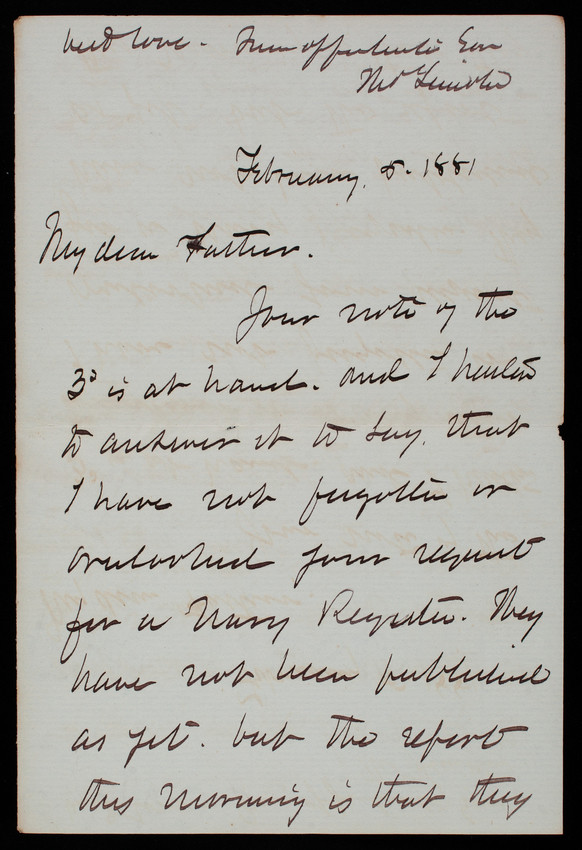 best love. Your affectionate Son
Thos Lincoln
February, 5. 1881
My dear Father.
Your note of the
3d is at hand. and I hasten
to answer it to say, that
I have not forgotten or
overlooked your request
for a Navy Register. They
have not been published
as yet. but the report
this morning is that they